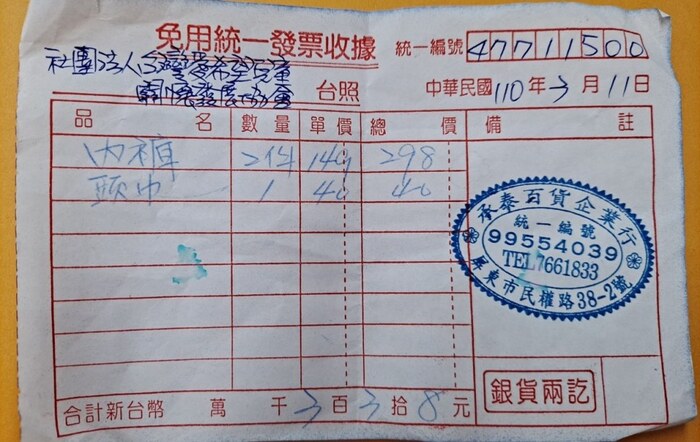 免用統一發票收據
統一編號 47711500
社團法人台灣愛希望兒童
關懷發展協會 台照
中華民國110年3月11日
品名 數量 單價 總價 備註
內褲 2件 149 298
頭巾 1 40 40
承泰百貨企業行
統一編號
99554039
TEL7661833
屏東市民權路38-2號
銀貨兩訖
合計新台幣 萬 千 3百 3拾 8元